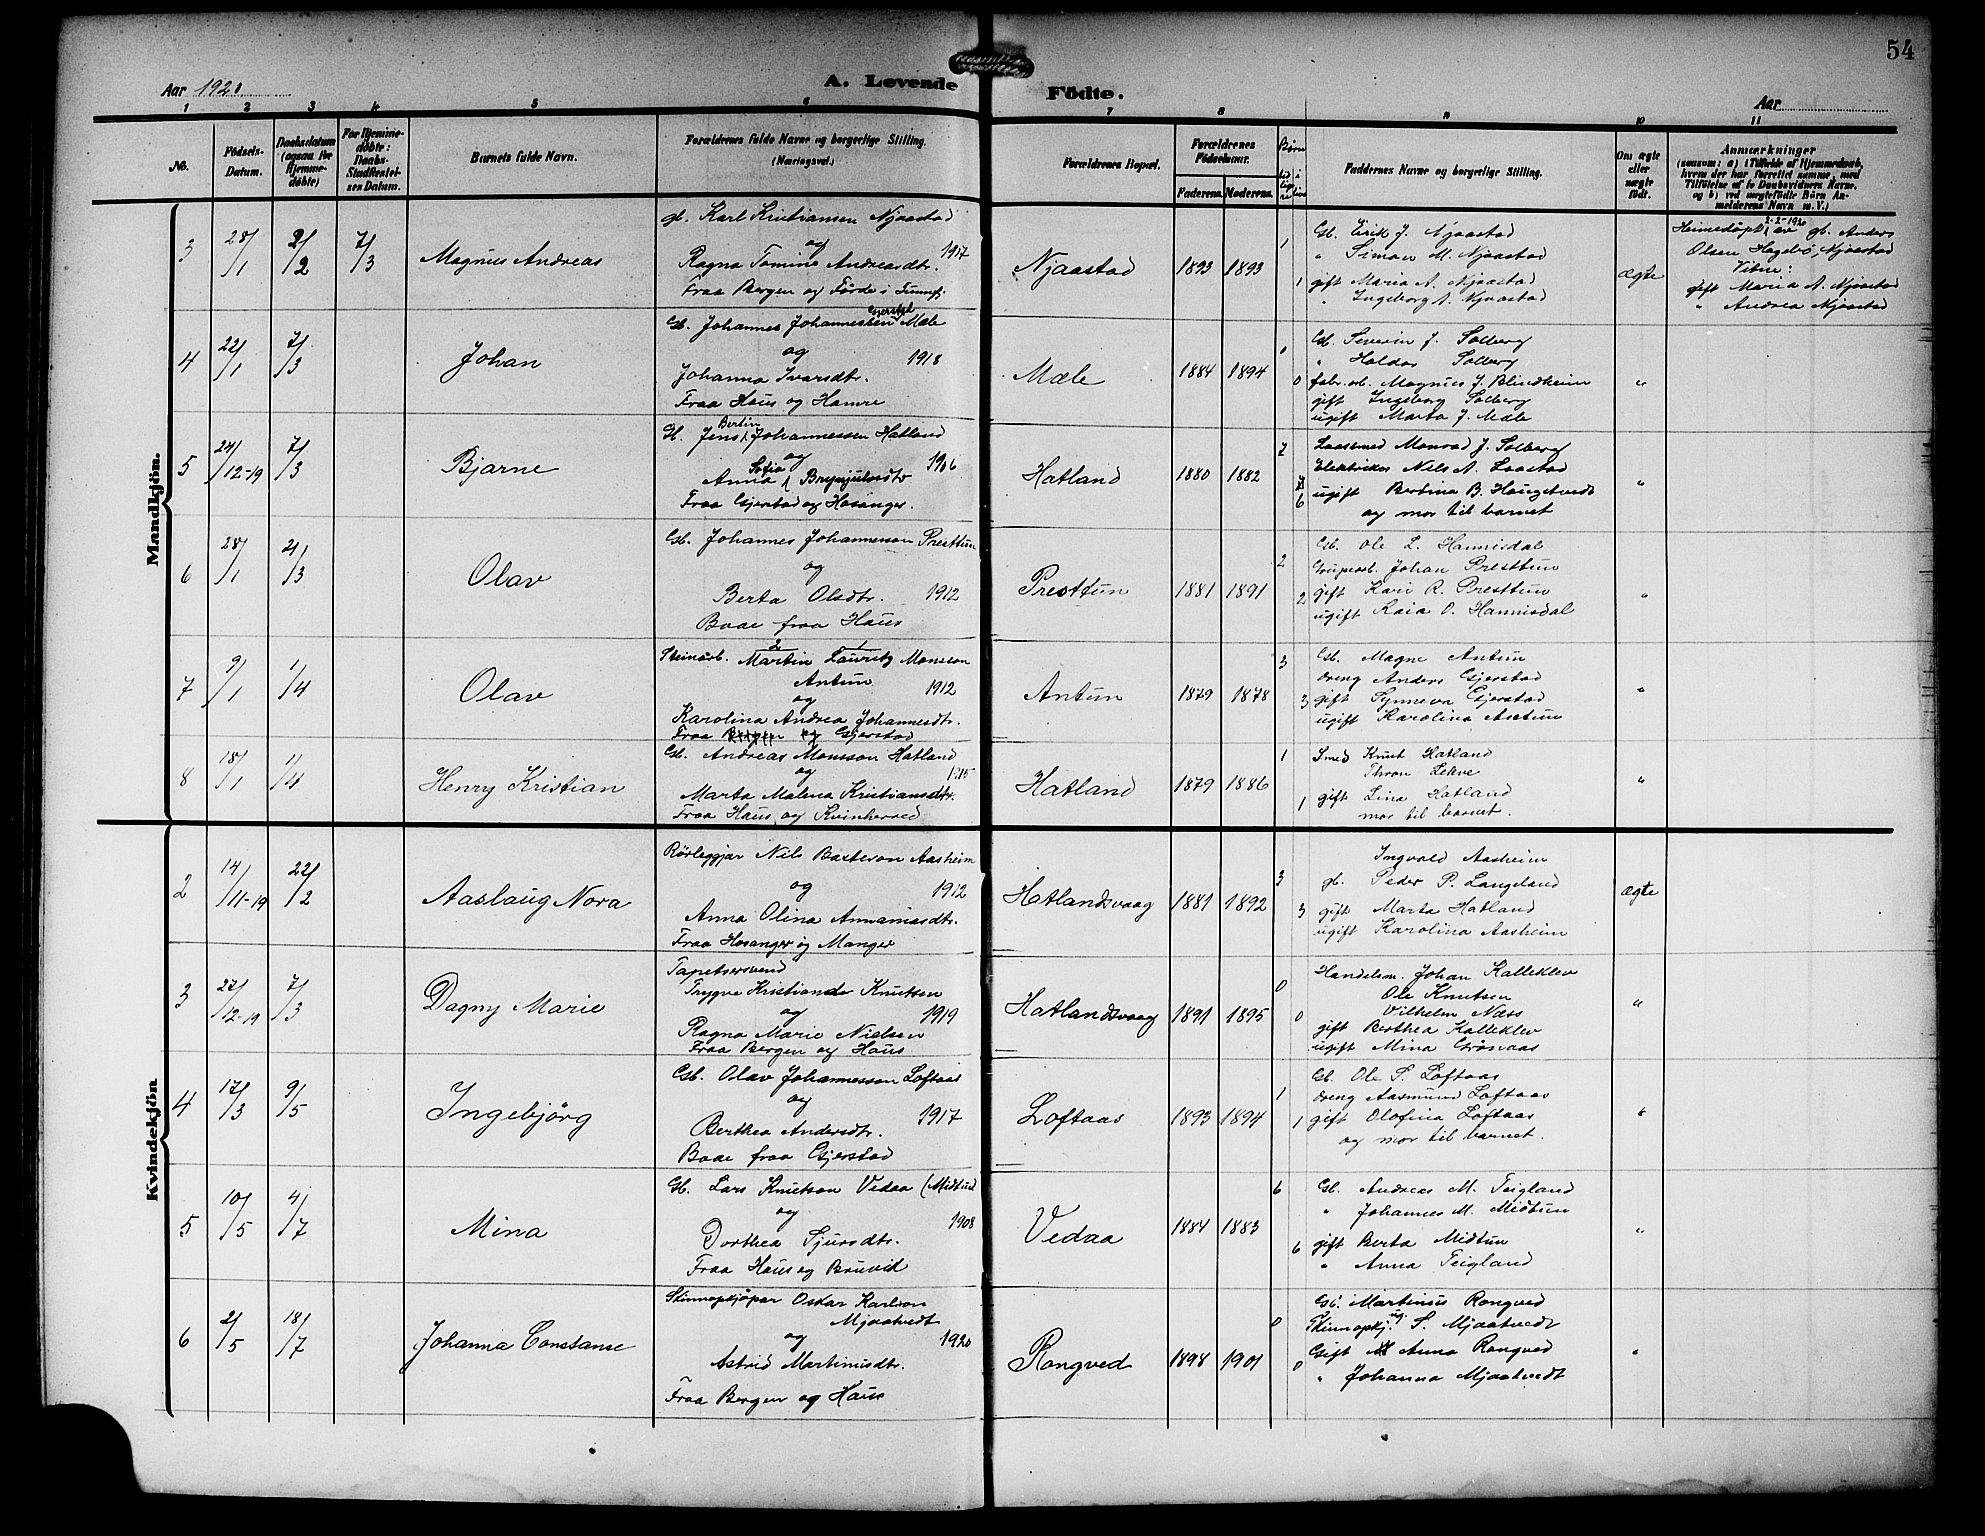 54
Aar 1920
A. Levende Födte.
Aar
1 2 3 4 5 6 7 8 9 10 11
No.
Födsels-Datum.
Daabsdatum (ogsaa for Hjemme-døbte)
For Hjemme-døbte: Daabs-Stadfæstel-ses Datum.
Barnets fulde Navn.
Forældrenes fulde Navne og borgerlige Stilling.
(Næringsvei.)
Forældrenes Bopæl.
Forældrenes Födselsaar.
Faderens. Moderens.
Faddernes Navne og borgerlige Stilling.
Om ægte eller uægte födt.
Anmærkninger
(saasom: a) i Tilfælde af Hjemmedaab,
hvem der har forrettet samme, med
Tilföielse af to Daabsvidners Navne,
og b) ved uægtefödte Börn An-
melderens Navn m. V.)
Mandkjön.
3 28/1 2/2 7/3 Magnus Andreas
gb. Karl Kristiansen Njaastad
og 1917
Ragna Tomine Andreasdtr.
Fraa Bergen og Förde i Sunnf.
Njaastad 1893 1893 1 1
Gb. Erik J. Njaastad
" Simon M. Njaastad
gift Maria A. Njaastad
" Ingeborg A. Njaastad
ægte
2-2-1920
Heimedöpt av gb. Anders
Olsen Hagebö, Njaastad
Vitne:
gift Maria A. Njaastad
" Andrea Njaastad
4 22/1 7/3 Johan
Gb. Johannes Johannessen Gjerstad Mæle
og 1918
Johanna Ivarsdtr.
Fraa Haus og Hamre
Mæle 1884 1894 0 0
Gb. Severin J. Solberg
" Haldor Solberg
fabr.arb. Magnus J. Blindheim
gift Ingeborg Solberg
ugift Marta J. Mæle
"
5 24/12-19 7/3 Bjarne
Gb. Jens Bertin Johannessen Hatland
og 1906
Anna Sofia Brynjulvsdtr
Fraa Gjerstad og Hosanger.
Hatland 1880 1882 7 6
Laasesmed Monrad J. Solberg
Elektriker Nils A. Laastad
ugift Bertina B. Haugstvedt
og mor til barnet
"
6 28/1 21/3 Olav
Gb. Johannes Johannesson Presttun
og
Berta Olsdtr. 1912
Baae fraa Haus
Presttun 1881 1891 2 2
Gb. Ole L. Hannisdal
Johan Presttun
gift Kari R. Presttun
ugift Kaia O. Hannisdal
"
7 9/1 1/4 Olav
2 1
Steinarb. Martin Lauritz Monsson
Antun 1912
og
Karolina Andrea Johannesdtr.
Fraa Gjerstad
Antun 1879 1878 3 3
Gb. Magne Antun
dreng Anders Gjerstad
gift Synneva Gjerstad
ugift Karolina Antun
"
8 18/1 1/4 Henry Kristian
Gb. Andreas Monsson Hatland
og 1915
Marta Malena Kristiansdtr.
Fraa Haus og Kvinherred
Hatland 1879 1886 1 1
Smed Knut Hatland
Thron Lekve
gift Lina Hatland
mor til barnet.
"
Kvindekjön
2 14/11-19 22/2 Aaslaug Nora
Rörleggjar Nils Basteson Aasheim
og 1912
Anna Olina Annaniasdtr.
Fraa Hosanger og Manger
Hatlandsvaag 1881 1892 3 3
Ingvald Aasheim
gb. Peder P. Langeland
gift Marta Hatland
ugift Karolina Aasheim
ægte
3 27/12-19 7/3 Dagny Marie
Tapetsersvend
Trygve Kristiande Knutsen
og 1919
Ragna Marie Nielsen
Fraa Bergen og Haus
Hatlandsvaag 1891 1895 0 0
Handelsm. Johan Kalleklev
Ole Knutsen
Vilhelm Næss
gift Berthea Kalleklev
ugift Mina Grönaas
"
4 17/3 9/5 Ingebjörg
Gb. Olav Johannesson Loftaas
og 1917
Berthea Andersdtr.
Baae fraa Gjerstad
Loftaas 1893 1894 1 1
Gb. Ole S. Loftaas
dreng Aasmund Loftaas
gift Olofina Loftaas
og mor til barnet.
"
5 10/5 4/7 Mina
Gb. Lars Knutson Vedaa (Midtun
og 1908
Dorthea Sjursdtr.
Fraa Haus og Bruvid
Vedaa 1884 1883 6 6
Gb. Andreas M. Teigland
" Johannes M. Midtun
gift Berta Midtun
" Anna Teigland
"
6 2/5 18/7 Johanna Constanse
Skinnopkjöpar Oskar Karlson
Mjaatvedt
og 1920
Astrid Martinusdtr.
Fraa Bergen og Haus
Rongved 1898 1901 0 0
Gb. Martinus Rongved
Skinnopkj. S. Mjaatvedt
Gift Anna Rongved
" Johanna Mjaatvedt
"